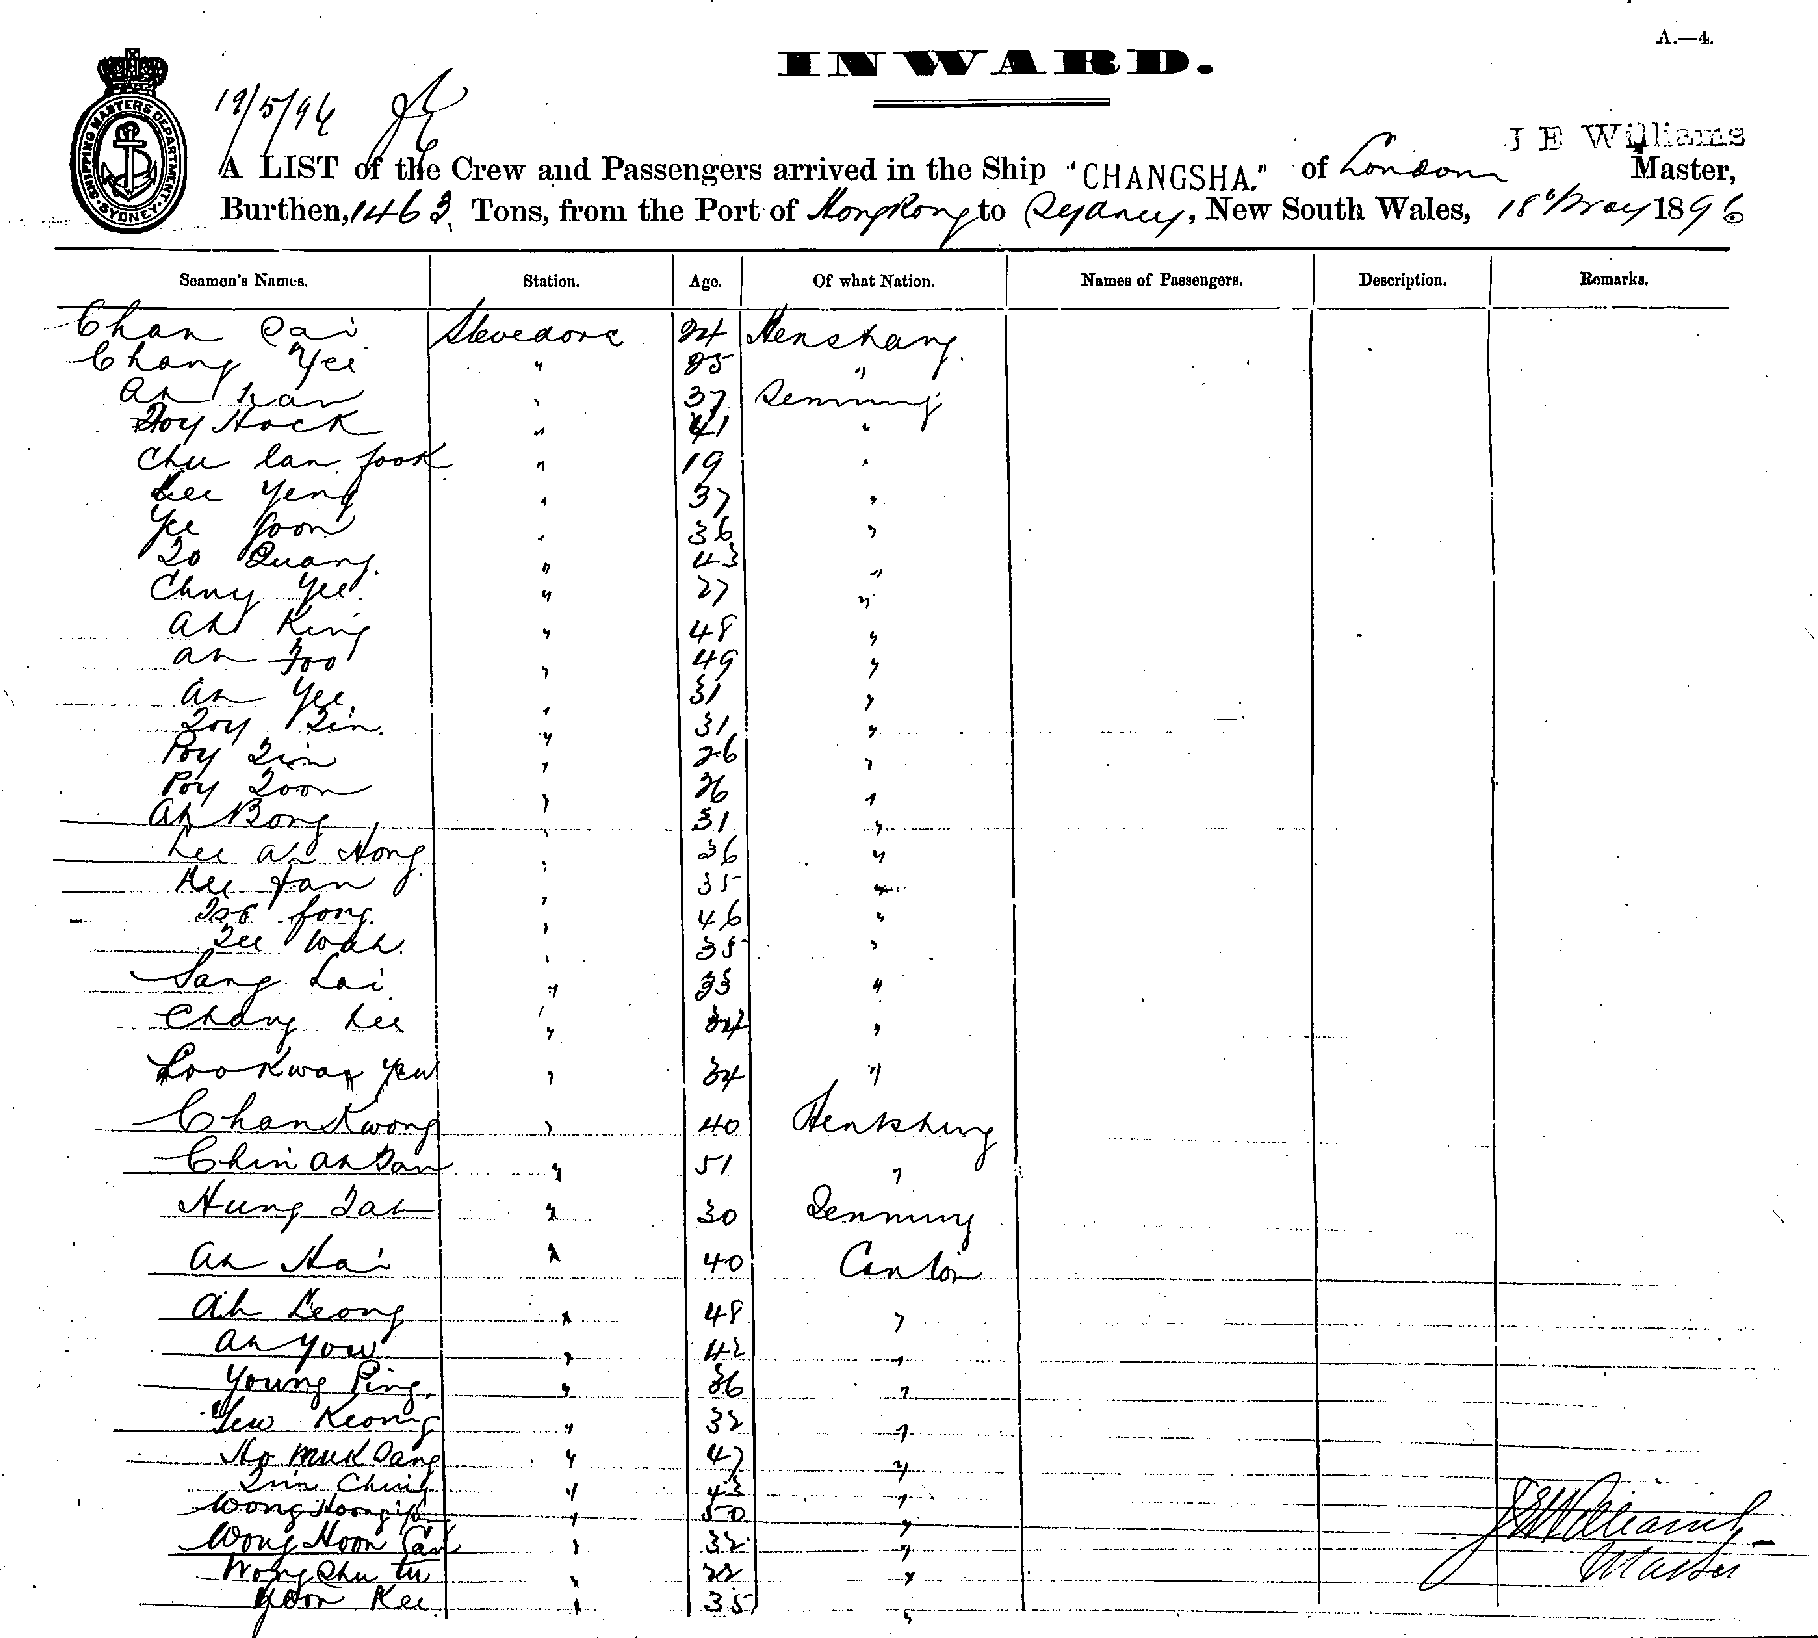 A.—4.
INWARD.
SHIPPING MASTERS DEPARTMENT SYDNEY
19/5/96
J E Williams
A LIST of the Crew and Passengers arrived in the Ship "CHANGSHA." of London Master,
Burthen, 1463 Tons, from the Port of Hongkong to Sydney, New South Wales, 18th May 1896
Seamen's Names. Station. Age. Of what Nation. Names of Passengers. Description. Remarks.
Chan Stevedore 24 Henshang
Chang Yee " 25 "
Ah 37 Sunning
Hock " 41 "
Chu lan fook " 19 "
Lee Yeng " 37 "
Yee foon " 36 "
Quang " 43 "
Chuy Yee " 27 "
Ah King " 48 "
Ah Foo " 49 "
Ah Yee " 31 "
" 31 "
Poy " 26 "
Poy " 26 "
Ah Bong " 31 "
Lee Ah Hong " 36 "
35 "
fong " 46 "
Wah " 35 "
Sang Lai " 33 "
Chang Lee " "
Loo Kwan Yew " 34 "
Chan Kwong " 40
Chin Ah " 51 "
Hung " 30 Sunning
Ah Hai " 40 Canton
Ah Leong " 48 "
Ah Yow " 42 "
Young Ping " 36 "
Yew Keong " 32 "
Ho Muk " 47 "
" 43 "
Wong " 50 "
Wong Hoon " 32 "
Wong Chu " 22 "
Yoon Kee " 35 "
J E Williams
Master